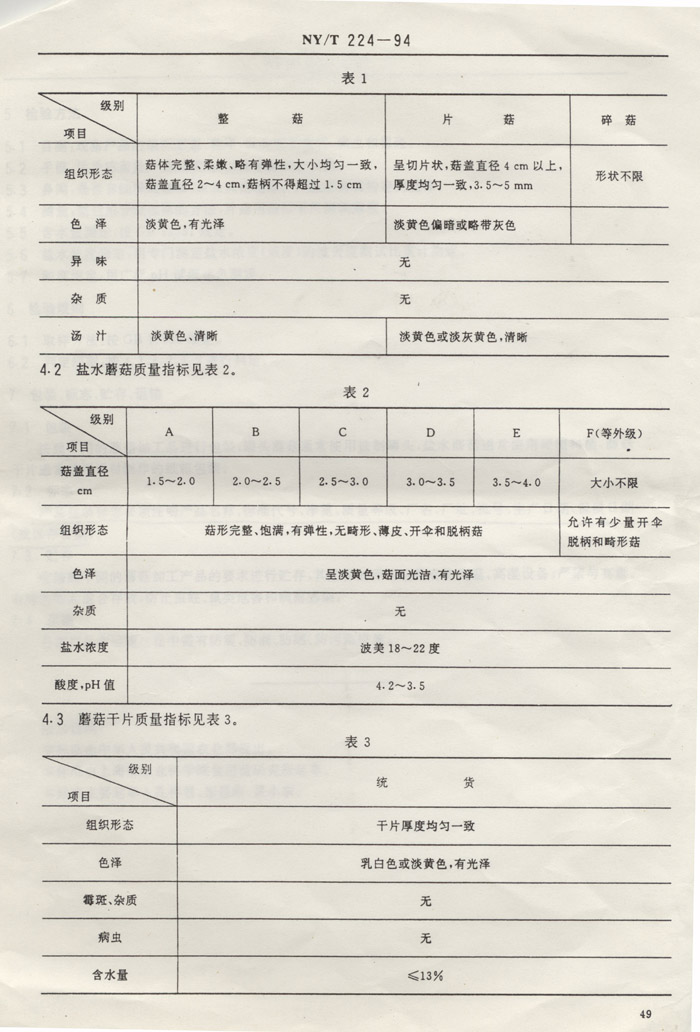 NY/T 224—94
表 1
级别
项目
整 菇
片 菇
碎 菇
组织形态
菇体完整、柔嫩、略有弹性,大小均匀一致,
菇盖直径 2~4 cm,菇柄不得超过 1.5 cm
呈切片状,菇盖直径 4 cm 以上,
厚度均匀一致,3.5~5 mm
形状不限
色 泽
淡黄色,有光泽
淡黄色偏暗或略带灰色
异 味
无
杂 质
无
汤 汁
淡黄色、清晰
淡黄色或淡灰黄色,清晰
4.2 盐水蘑菇质量指标见表 2。
表 2
级别
项目
A
B
C
D
E
F(等外级)
菇盖直径
cm
1.5~2.0
2.0~2.5
2.5~3.0
3.0~3.5
3.5~4.0
大小不限
组织形态
菇形完整、饱满,有弹性,无畸形、薄皮、开伞和脱柄菇
允许有少量开伞
脱柄和畸形菇
色泽
呈淡黄色,菇面光洁,有光泽
杂质
无
盐水浓度
波美 18~22 度
酸度,pH 值
4.2~3.5
4.3 蘑菇干片质量指标见表 3。
表 3
级别
项目
统 货
组织形态
干片厚度均匀一致
色泽
乳白色或淡黄色,有光泽
霉斑、杂质
无
病虫
无
含水量
≤13%
49